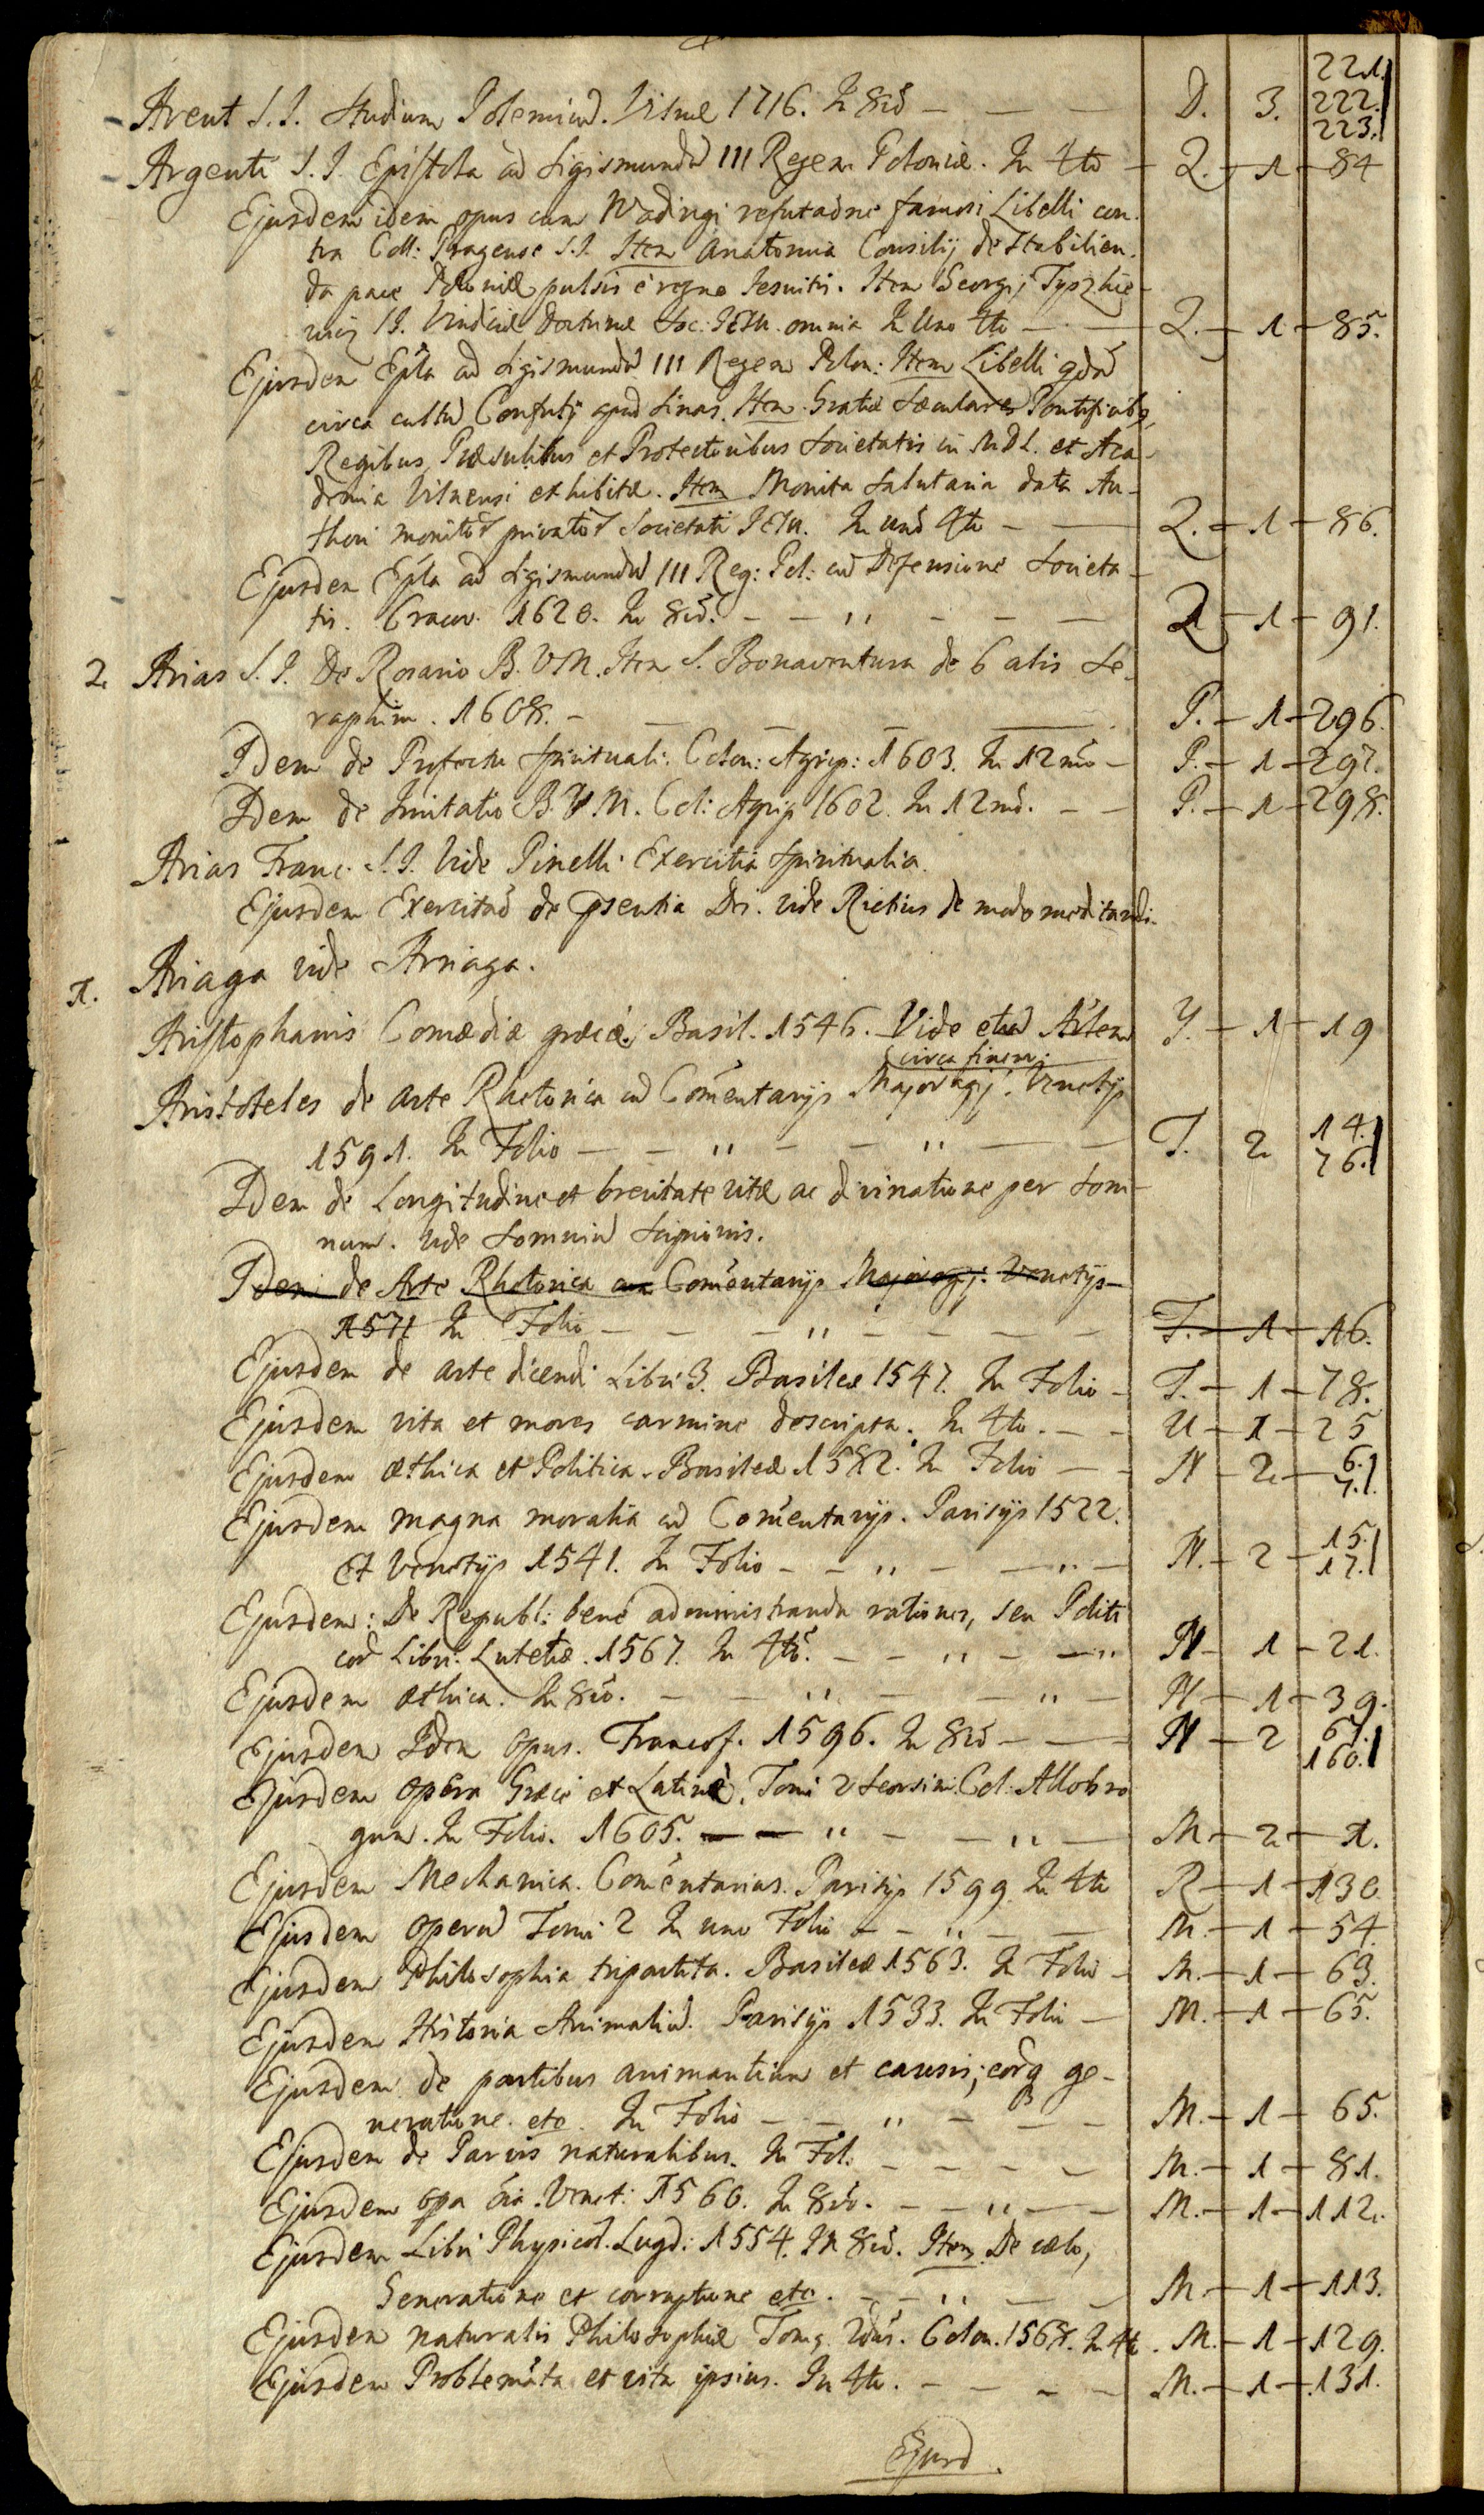 Arent S. I. Studium Polemicũ. Vilnæ 1716. In 8vo — — D. 3. 221. 222. 223.
Argenti S. I. Epistola ad Sigismundũ III Regem Poloniæ. In 4to — Q. — 1 — 84
Ejusdem idem opus cum Wadingi refutaõne famosi Libelli con-
tra Coll: Pragense S. I. Item Anatomia Consilij de stabilien-
da pace Poloniæ pulsis è regno Jesuitis. Item Georgij Tyszkie-
wicz S I. Vindiciæ doctrinæ Soc: JESU. omnia In Uno 4to — — Q. — 1 — 85.
Ejusdem Epla ad Sigismundũ III Regem Polon: Item Libelli qdã
circa cultũ Confutij apud Sinas. Item. Gratiæ Sæculares Pontificibq,
Regibus, Præsulibus et Protectoribus Societatis in M D L. et Aca-
demia Vilnensi exhibitæ. Item Monita Salutaria data Au-
thori monitor̃ privator̃ Societati JESU. In unõ 4to — — Q. — 1 — 86.
Ejusdem Epla ad Sigismundũ III Reg: Pol: cũ Defensione Societa-
tis. Cracov. 1620. In 8vo. — — " — — — Q — 1 — 91.
2. Arias S. I. De Rosario B. V M. Item S. Bonaventura de 6 alis Se-
raphim. 1608. — — — — — P. — 1 — 296.
Idem de Profectu spirituali. Colon: Agrip: 1603. In 12mo — P. — 1 — 297.
Idem de Imitatio B. V. M. Col: Agrip 1602. In 12mo. — — P. — 1 — 298.
Arias Franc. S. I. Vide Pinelli Exercitia Spiritualia.
Ejusdem Exercitaõ de psentia Dei. vide Rictius de modo meditandi.
1. Ariaga vide Arriaga.
Aristophanis Comædiæ græcè. Basil. 1546. Vide etiã Artem Y. — 1 — 19
circa finem.
Aristoteles de arte Rhetorica cũ Com̃entarijs Majoragij. Venetijs
1591. In Folio — — " — — " — — T. 2. 14. 76.
Idem de Longitudine et brevitate vitæ ac divinatione per som-
num. vide Somniũ Scipionis.
Idem de Arte Rhetorica cum Com̃entarijs Majoragij. Venetijs —
1571 In Folio — — — " — — — — T. — 1 — 16.
Ejusdem de arte dicendi Libri 3. Basileæ 1547. In Folio — T. — 1 — 78.
Ejusdem vita et mores carmine descripta. In 4to. — — U — 1 — 25
Ejusdem æthica et Politica. Basileæ 1582. In Folio — — N — 2. — 6. 7.
Ejusdem magna moralia cũ Com̃entarijs. Parisijs 1522.
Et Venetijs 1541. In Folio — — " — — " — N. — 2 — 15. 17.
Ejusdem: De Republ: benè administranda rationes, seu Politi
cor̃ Libri. Lutetiæ. 1567. In 4to. — — " — — " N — 1 — 21.
Ejusdem æthica. In 8vo. — — " — — " — N — 1 — 39.
Ejusdem Idem opus. Francof. 1596. In 8vo — — — N — 2 67. 160.
Ejusdem opera Græcè et Latinè. Tomi 2 seorsim. Col: Allobro
gum. In Folio. 1605. — — " — — " — M — 2 — 1.
Ejusdem Mechanica. Com̃entarius. Parisijs 1599. In 4to R — 1 — 130
Ejusdem operũ Tomi 2 In uno Folio — — " — — M. — 1 — 54.
Ejusdem Philosophia tripartita. Basileæ 1563. In Folio — M. — 1 — 63.
Ejusdem Historia Animaliũ. Parisijs 1533. In Folio — M. — 1 — 65.
Ejusdem de partibus animantium et causis; eorq ge-
neratione. etc. In Folio — — " — — — M. — 1 — 65.
Ejusdem de Parvis naturalibus. In Fol. — — — — M. — 1 — 81.
Ejusdem opa õia. Venet: 1560. In 8vo. — — " — — M. — 1 — 112.
Ejusdem Libri Physicor̃. Lugd: 1554. In 8vo. Item. De cælo,
Generatione et corruptione etc. — — " — — M — 1 — 113.
Ejusdem naturalis Philosophiæ Tomq. 2dus. Colon. 1568. In 4to. M. — 1 — 129.
Ejusdem Problemata et vita ipsius. In 4to. — — — — M. — 1 — 131.
Ejusd.